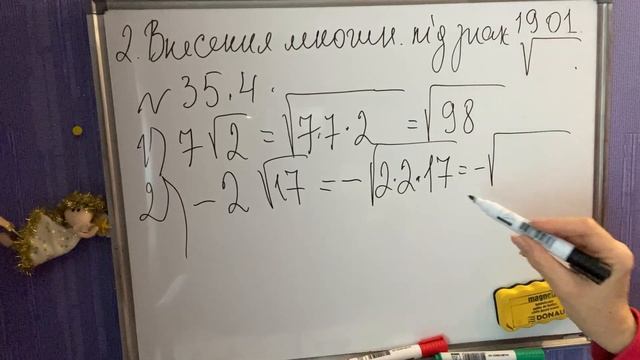 2. Внесення множн. під знак √ .
19 01
№ 35.4.
1) 7√2 = √7·7·2 = √98
2) -2√17 = -√2·2·17 = -√
magnetic
DONAU